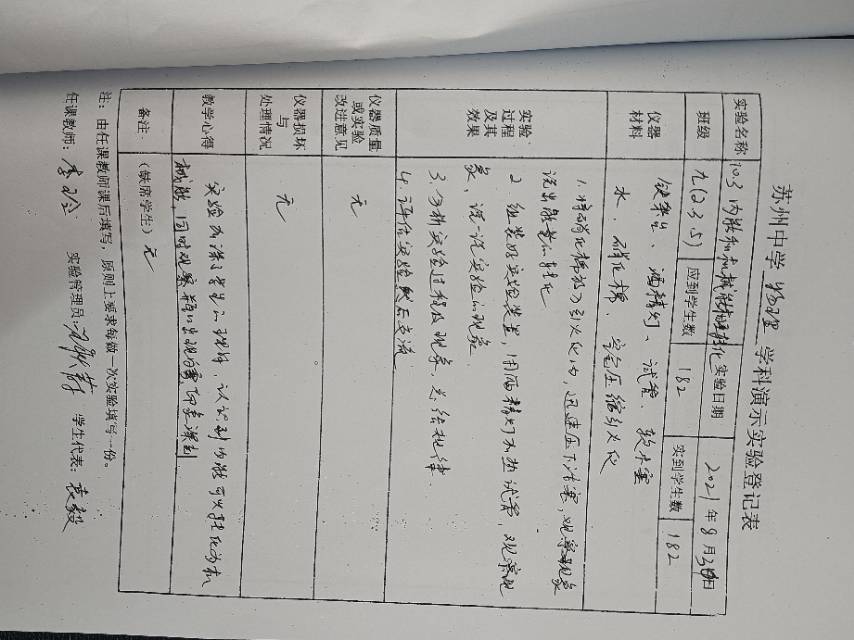 苏州中学 物理 学科演示实验登记表
实验名称 10.3 内能和机械能相互转化 实验日期 2021年9月3日
班级 九(2.3.5) 应到学生数 182 实到学生数 182
仪器材料
铁架台、酒精灯、试管、软木塞
水、硝化棉、空气压缩引火仪
实验过程及其效果
1. 将硝化棉放入引火仪内，迅速压下活塞，观察现象
说出能量的转化
2. 组装好实验装置，用酒精灯加热试管，观察现
象，说一说实验的现象.
3. 分析实验过程及现象，总结规律.
4. 评估实验然后交流
仪器质量或实验改进意见
无
仪器损坏与处理情况
无
教学心得
实验加深了学生的理解，认识到内能可以转化为机
械能，同时观察瓶口出现的 印象深刻
备注: (缺席学生) 无
注：由任课教师课后填写，原则上要求每做一次实验填写一份。
任课教师: 实验管理员: 学生代表: 袁毅